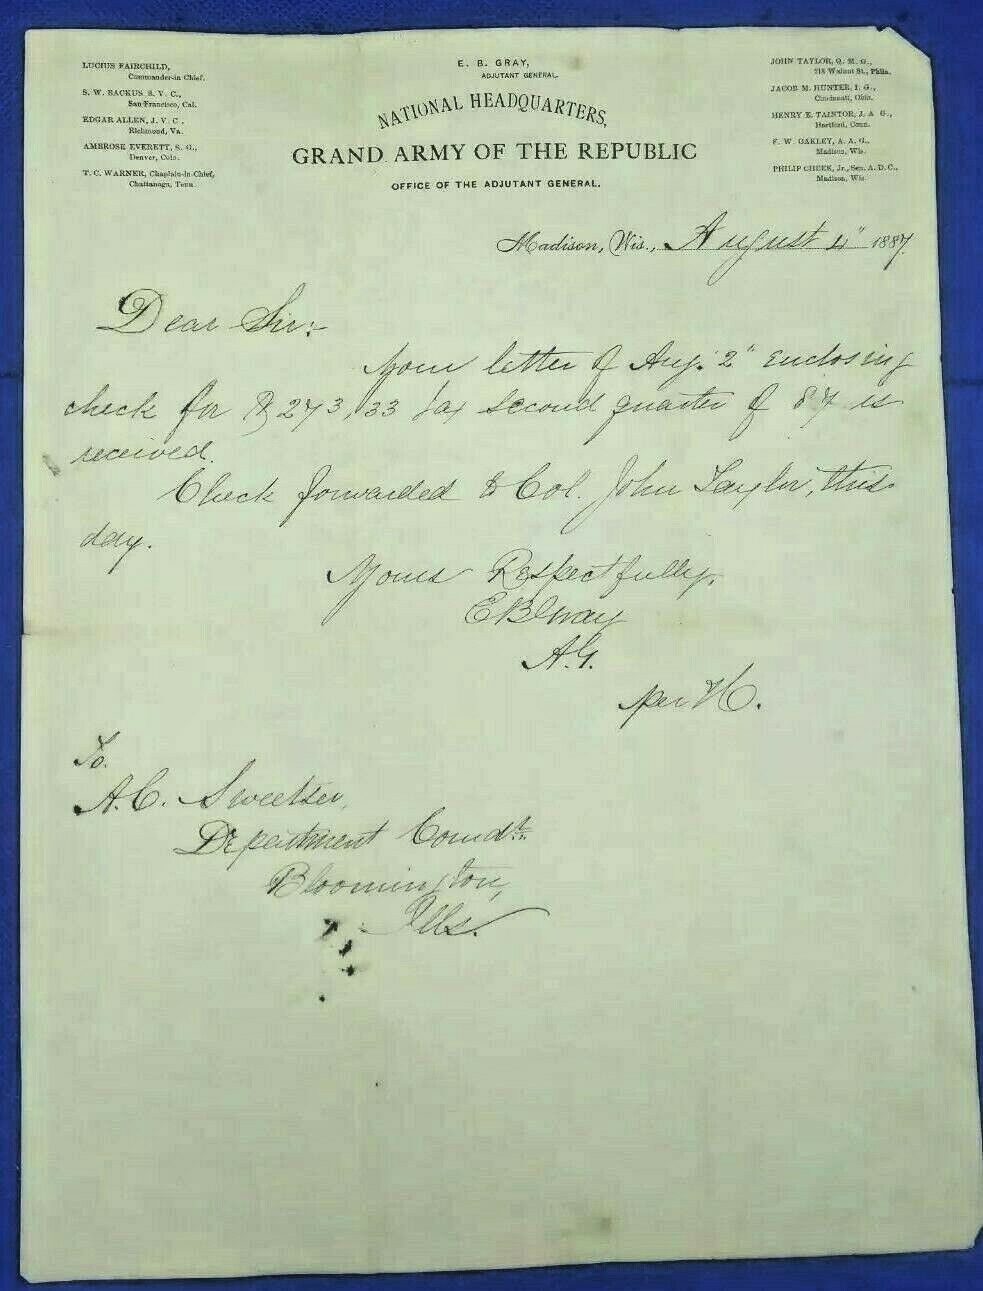 LUCIUS FAIRCHILD,
Commander-in Chief.
S. W. BACKUS S. V. C.,
San Francisco, Cal.
EDGAR ALLEN, J. V. C.,
Richmond, Va.
AMBROSE EVERETT, S. G.,
Denver, Colo.
T. C. WARNER, Chaplain-in-Chief,
Chattanoga, Tenn
E. B. GRAY,
ADJUTANT GENERAL.
NATIONAL HEADQUARTERS,
GRAND ARMY OF THE REPUBLIC
OFFICE OF THE ADJUTANT GENERAL.
JOHN TAYLOR, Q. M. G.,
218 Walnut St., Phila.
JACOB M. HUNTER, I. G.,
Cincinnati, Ohio.
HENRY E. TAINTOR, J. A G.,
Hartford, Conn.
F. W. OAKLEY, A. A. G.,
Madison, Wis.
PHILIP CHEEK, Jr., Sen. A. D. C.,
Madison, Wis.
Madison, Wis., August 4" 1887.
Dear Sir:-
Your letter of Aug. 2" enclosing
check for $273,33 tax second quarter of 87 is
received.
Check forwarded to Col. John Taylor, this
day.
Yours Respectfully,
E B Gray
A.G.
per H.
To.
A.C. Sweetser,
Department Comdt.
Bloomington,
Ills.